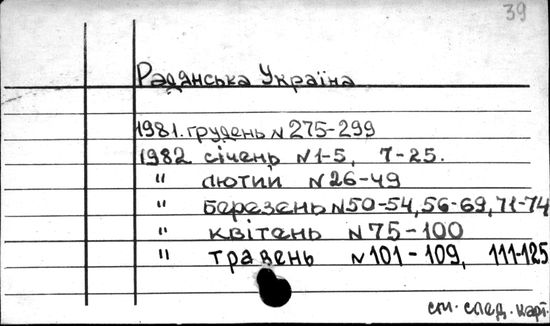 39
Радянська Україна
1981. грудень N 275-299
1982 січень N 1-5, 7-25.
" лютий N 26-49
" березень N 50-54, 56-69, 71-74
" квітень N 75-100
" травень N 101-109, 111-125
см. след. карт